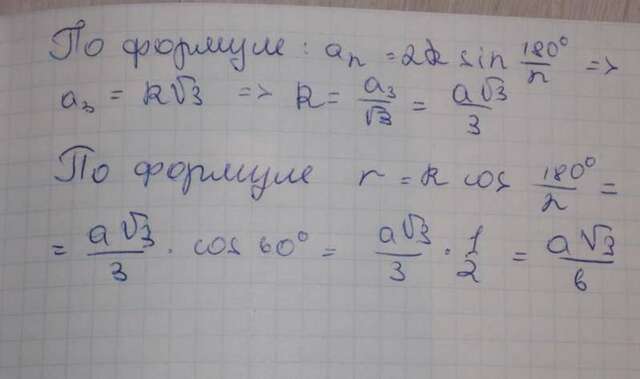 По формуле: aₙ = 2R sin 180°/n =>
a₃ = R√3 => R = a₃/√3 = a√3/3
По формуле r = R cos 180°/n =
= a√3/3 · cos 60° = a√3/3 · 1/2 = a√3/6